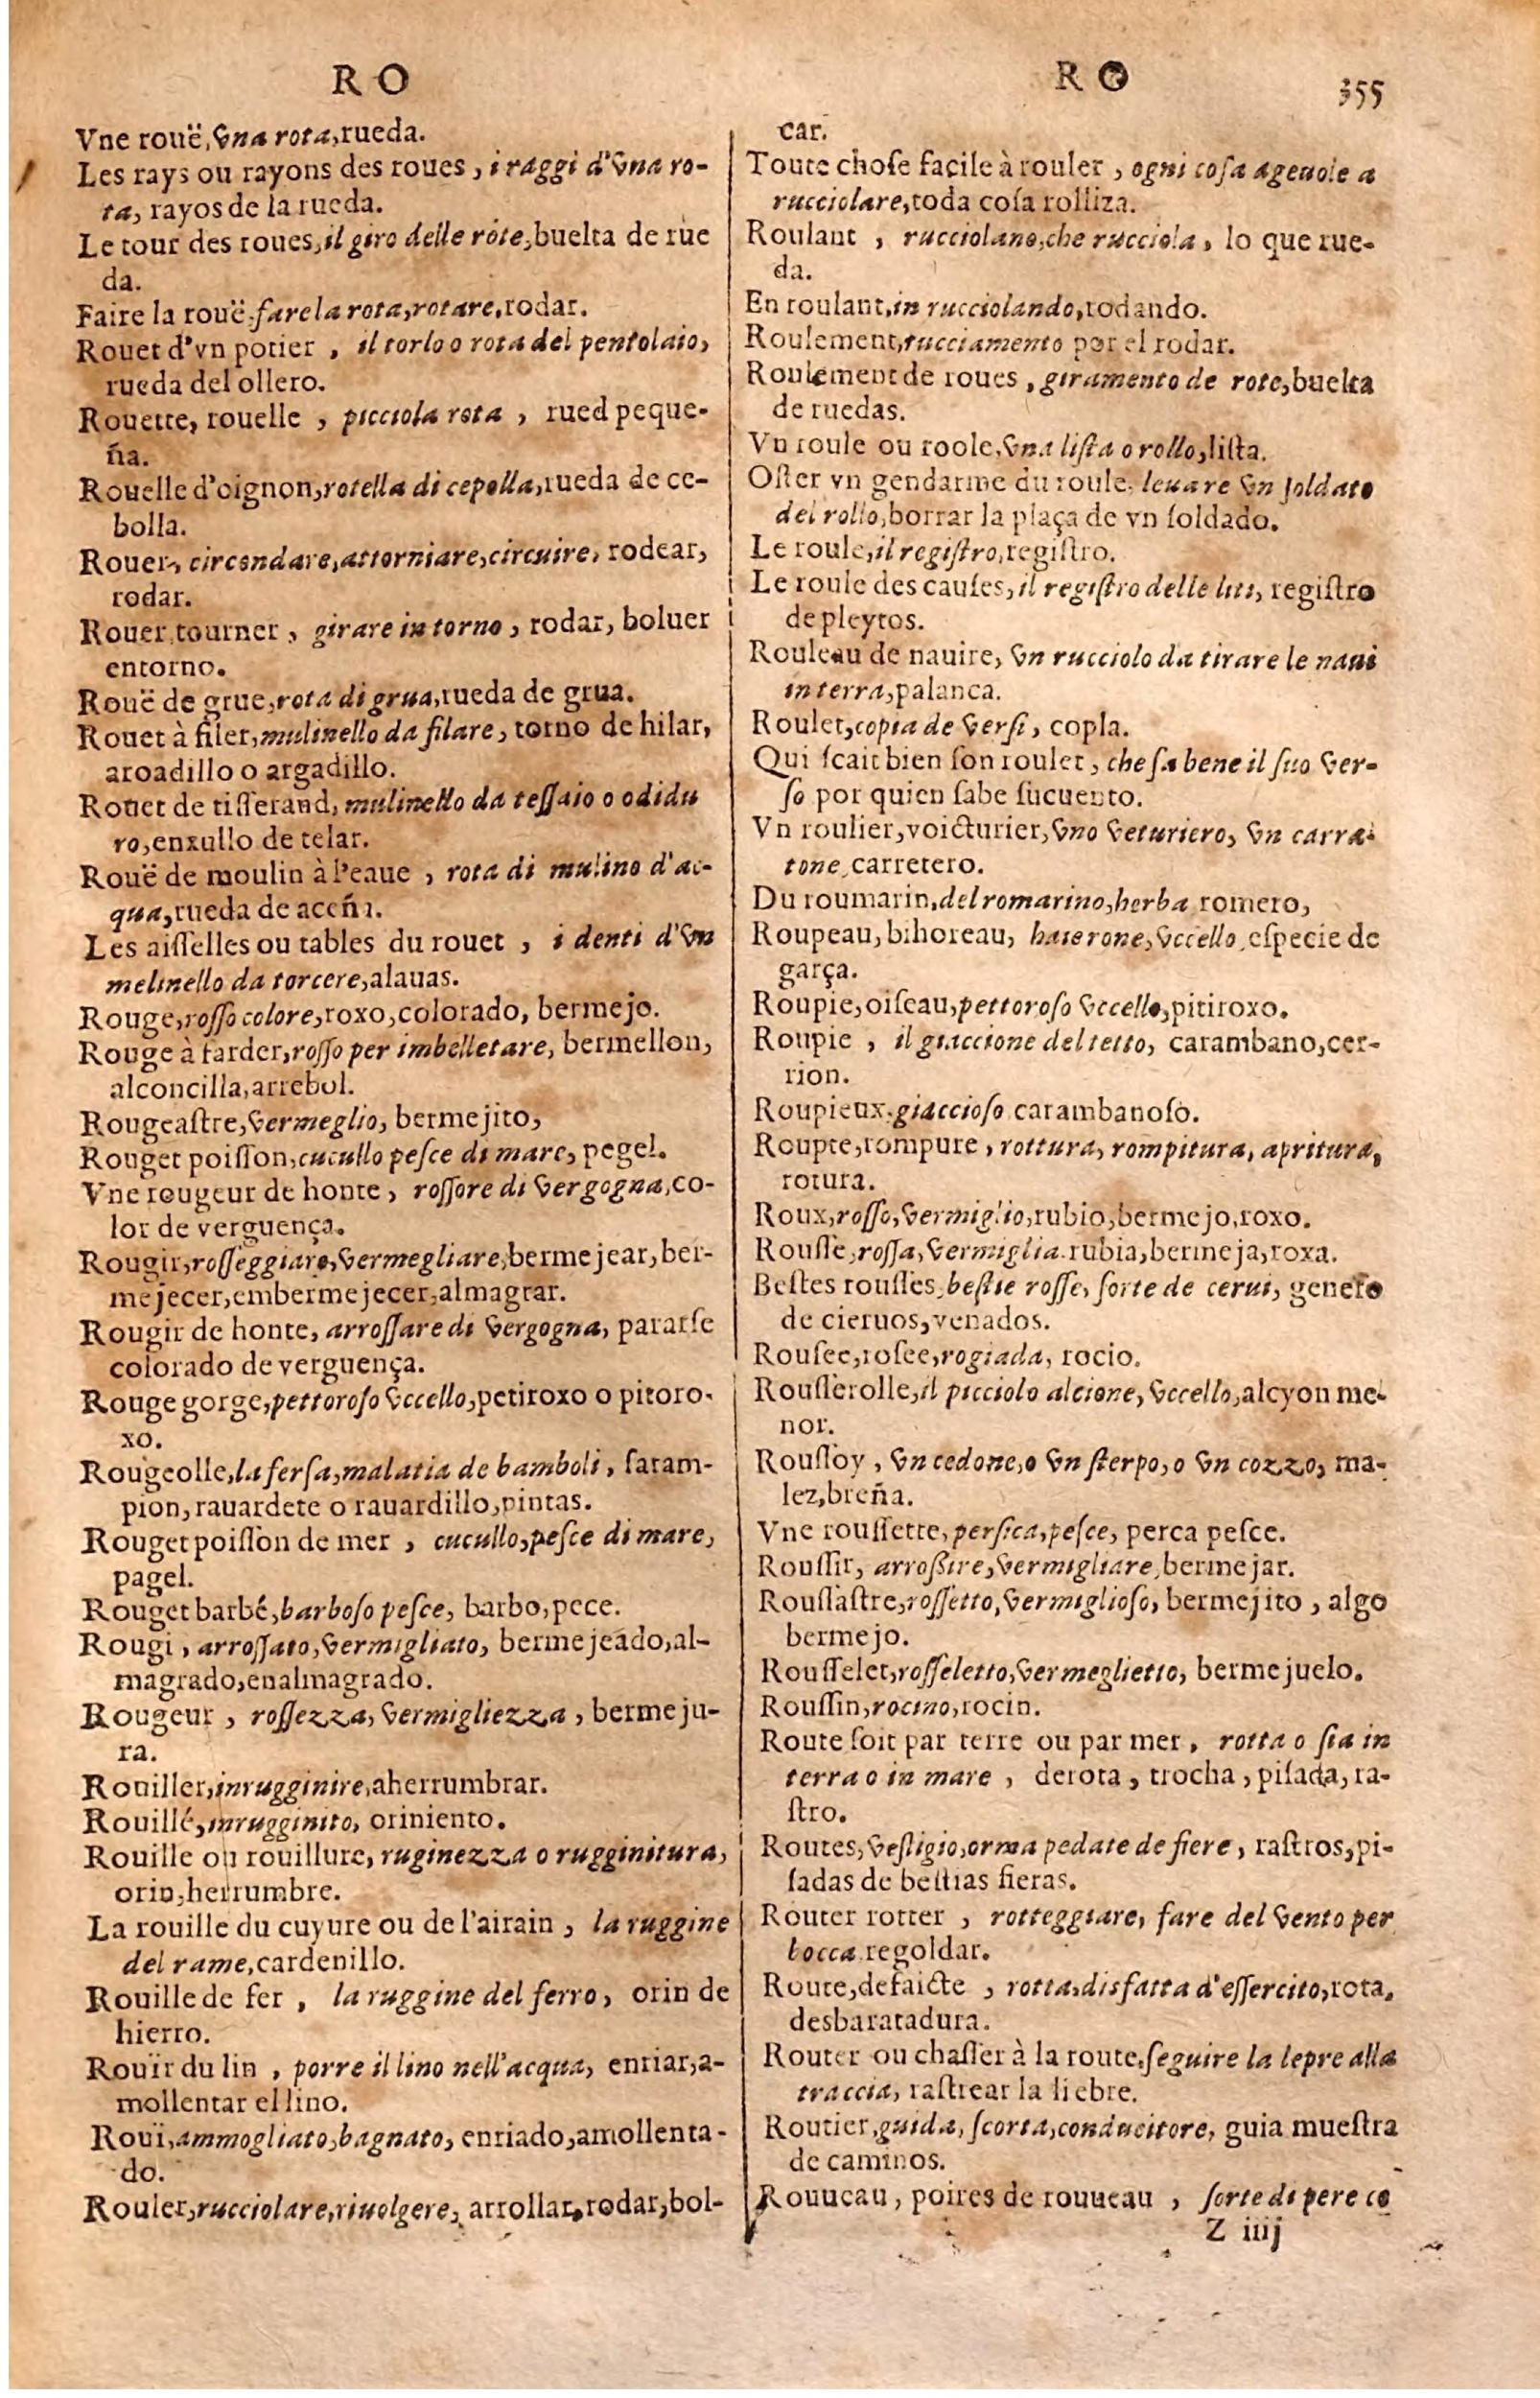 RO
Vne rouë, vna rota, rueda.
Les rays ou rayons des roues, i raggi d'vna ro-
ta, rayos de la rueda.
Le tour des roues, il giro delle rote, buelta de rue
da.
Faire la rouë, fare la rota, rotare, rodar.
Rouet d'vn potier, il torlo o rota del pentolaio,
rueda del ollero.
Rouette, rouelle, picciola rota, rued peque-
ña.
Rouelle d'oignon, rotella di cepolla, rueda de ce-
bolla.
Rouer, circondare, attorniare, circuire, rodear,
rodar.
Rouer, tourner, girare in torno, rodar, boluer
entorno.
Rouë de grue, rota di grua, rueda de grua.
Rouet à filer, mulinello da filare, torno de hilar,
aroadillo o argadillo.
Rouet de tisserand, mulinello da tessaio o odidu
ro, enxullo de telar.
Rouë de moulin à l'eaue, rota di mulino d'ac-
qua, rueda de aceña.
Les aisselles ou tables du rouet, i denti d'vn
melinello da torcere, alauas.
Rouge, rosso colore, roxo, colorado, bermejo.
Rouge à farder, rosso per imbelletare, bermellon,
alconcilla, arrebol.
Rougeaſtre, vermeglio, bermejito,
Rouget poiſſon, cucullo peſce di mare, pegel.
Vne rougeur de honte, roſſore di vergogna, co-
lor de verguença.
Rougir, roſſeggiare, vermegliare, bermejear, ber-
mejecer, embermejecer, almagrar.
Rougir de honte, arroſſare di vergogna, pararſe
colorado de verguença.
Rouge gorge, pettoroſo vccello, petiroxo o pitoro-
xo.
Rougeolle, la ferſa, malatia de bamboli, ſaram-
pion, rauardete o rauardillo, pintas.
Rouget poiſſon de mer, cucullo, peſce di mare,
pagel.
Rouget barbé, barboſo peſce, barbo, pece.
Rougi, arroſſato, vermigliato, bermejeado, al-
magrado, enalmagrado.
Rougeur, roſſezza, vermigliezza, bermeju-
ra.
Rouiller, inrugginire, aherrumbrar.
Rouillé, inrugginito, oriniento.
Rouille ou rouillure, ruginezza o rugginitura,
orin, herrumbre.
La rouille du cuyure ou de l'airain, la ruggine
del rame, cardenillo.
Rouille de fer, la ruggine del ferro, orin de
hierro.
Rouïr du lin, porre il lino nell'acqua, enriar, a-
mollentar el lino.
Rouï, ammogliato, bagnato, enriado, amollenta-
do.
Rouler, rucciolare, riuolgere, arrollar, rodar, bol-
RO 355
car.
Toute choſe facile à rouler, ogni coſa ageuole a
rucciolare, toda coſa rolliza.
Roulant, rucciolano, che rucciola, lo que rue-
da.
En roulant, in rucciolando, rodando.
Roulement, rucciamento por el rodar.
Roulement de roues, giramento de rote, buelta
de ruedas.
Vn roule ou roole, vna liſta o rollo, liſta.
Oſter vn gendarme du roule, leuare vn ſoldato
del rollo, borrar la plaça de vn ſoldado.
Le roule, il regiſtro, regiſtro.
Le roule des cauſes, il regiſtro delle liti, regiſtro
de pleytos.
Rouleau de nauire, vn rucciolo da tirare le naui
in terra, palanca.
Roulet, copia de verſi, copla.
Qui ſcait bien ſon roulet, che ſa bene il ſuo ver-
ſo por quien ſabe ſucuento.
Vn roulier, voicturier, vno veturiero, vn carra-
tone, carretero.
Du roumarin, del romarino, herba romero,
Roupeau, bihoreau, haierone, vccello, eſpecie de
garça.
Roupie, oiſeau, pettoroſo vccello, pitiroxo.
Roupie, il giaccione del tetto, carambano, cer-
rion.
Roupieux, giaccioso carambanoso.
Roupte, rompure, rottura, rompitura, apritura,
rotura.
Roux, roſſo, vermiglio, rubio, bermejo, roxo.
Rouſſe, roſſa, vermiglia rubia, bermeja, roxa.
Beſtes rouſſes, beſtie roſſe, ſorte de cerui, genero
de cieruos, venados.
Rouſee, roſee, rogiada, rocio.
Rouſſerolle, il picciolo alcione, vccello, alcyon me-
nor.
Rouſſoy, vn cedone, o vn ſterpo, o vn cozzo, ma-
lez, breña.
Vne rouſſette, perſica, peſce, perca peſce.
Rouſſir, arroſsire, vermigliare, bermejar.
Rouſſaſtre, roſſetto, vermiglioſo, bermejito, algo
bermejo.
Rouſſelet, roſſeletto, vermeglietto, bermejuelo.
Rouſſin, rocino, rocin.
Route ſoit par terre ou par mer, rotta o ſia in
terra o in mare, derota, trocha, piſada, ra-
ſtro.
Routes, veſtigio, orma pedate de fiere, raſtros, pi-
ſadas de beſtias fieras.
Router rotter, rotteggiare, fare del vento per
bocca regoldar.
Route, defaicte, rotta, disfatta d'eſſercito, rota,
desbaratadura.
Router ou chaſſer à la route, ſeguire la lepre alla
traccia, raſtrear la liebre.
Routier, guida, ſcorta, conducitore, guia mueſtra
de caminos.
Rouueau, poires de rouueau, ſorte di pere co
Z iiij